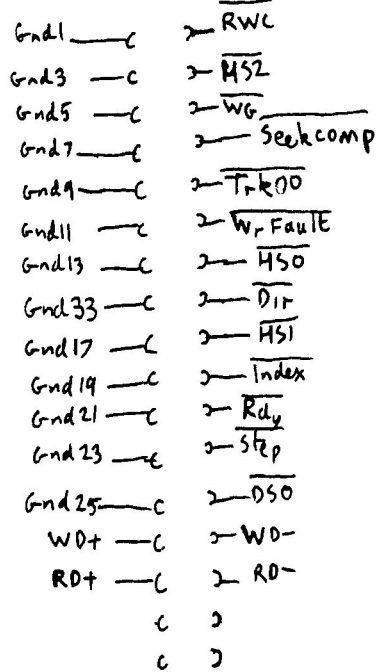 Gnd1 RWC
Gnd3 HS2
Gnd5 WG
Gnd7 Seekcomp
Gnd9 Trk00
Gnd11 Wr FaulE
Gnd13 HS0
Gnd33 Dir
Gnd17 HS1
Gnd19 Index
Gnd21 Rdy
Gnd23 Step
Gnd25 DS0
WD+ WD-
RD+ RD-